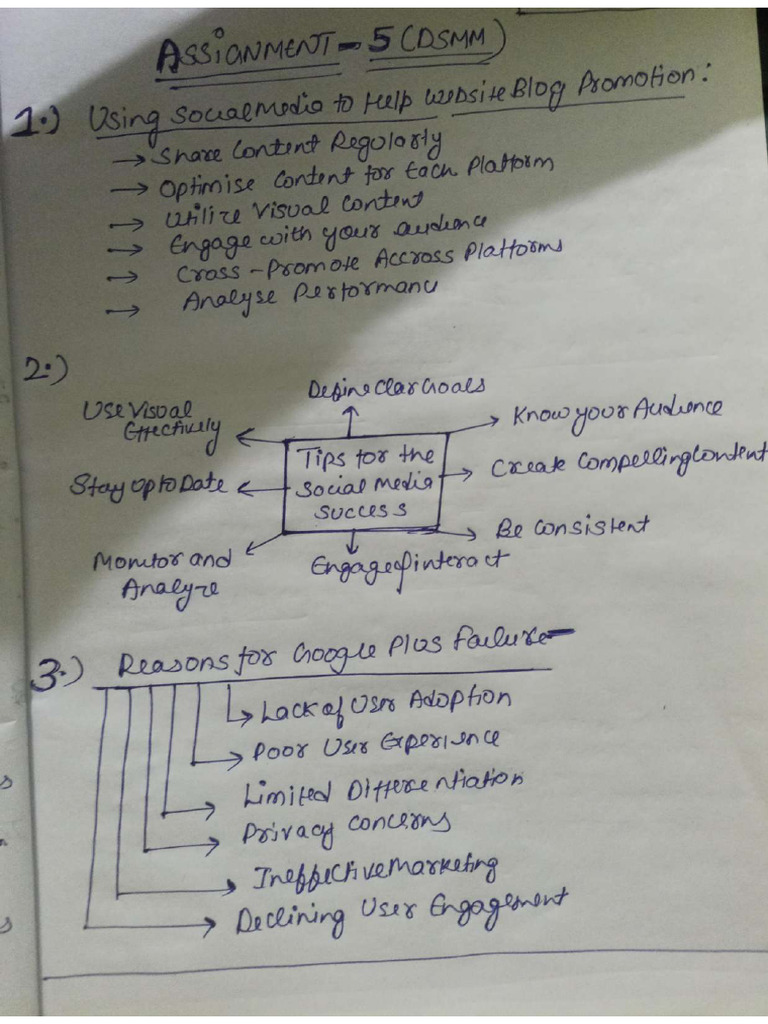 ASSIGNMENT - 5 (DSMM)
1.) Using Social Media to Help Website Blog Promotion:
→ Share Content Regularly
→ Optimise Content for Each Platform
→ Utilize Visual Content
→ Engage with your audience
→ Cross-Promote Accross Platforms
→ Analyse Performanc
2.)
Define Clar Goals
Use Visual Effectively
Know your Audience
Tips for the Social Media Success
Create Compelling Content
Stay Up to Date
Be Consistent
Monitor and Analyze
Engage & interact
3.) Reasons for Google Plus Failure-
→ Lack of User Adoption
→ Poor User Experience
→ Limited Differentiation
→ Privacy Concerns
→ Ineffective Marketing
→ Declining User Engagement